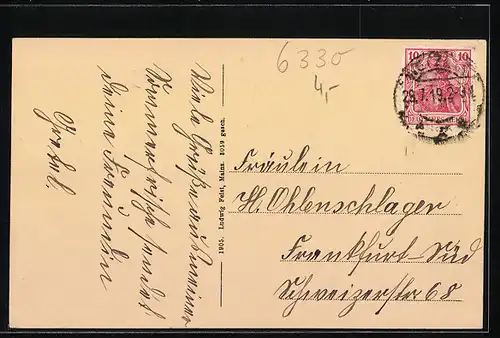 6330
4,-
10 10
WETZL
29.7.19.2-3N.
Viele Grüße aus meiner
Sommerfrische sendet
deine Freundin
Gretel.
1905. Ludwig Feist, Mainz. 8059 gesch.
Fräulein
H. Ohlenschlager
Frankfurt-Süd
Schweizerstr 68